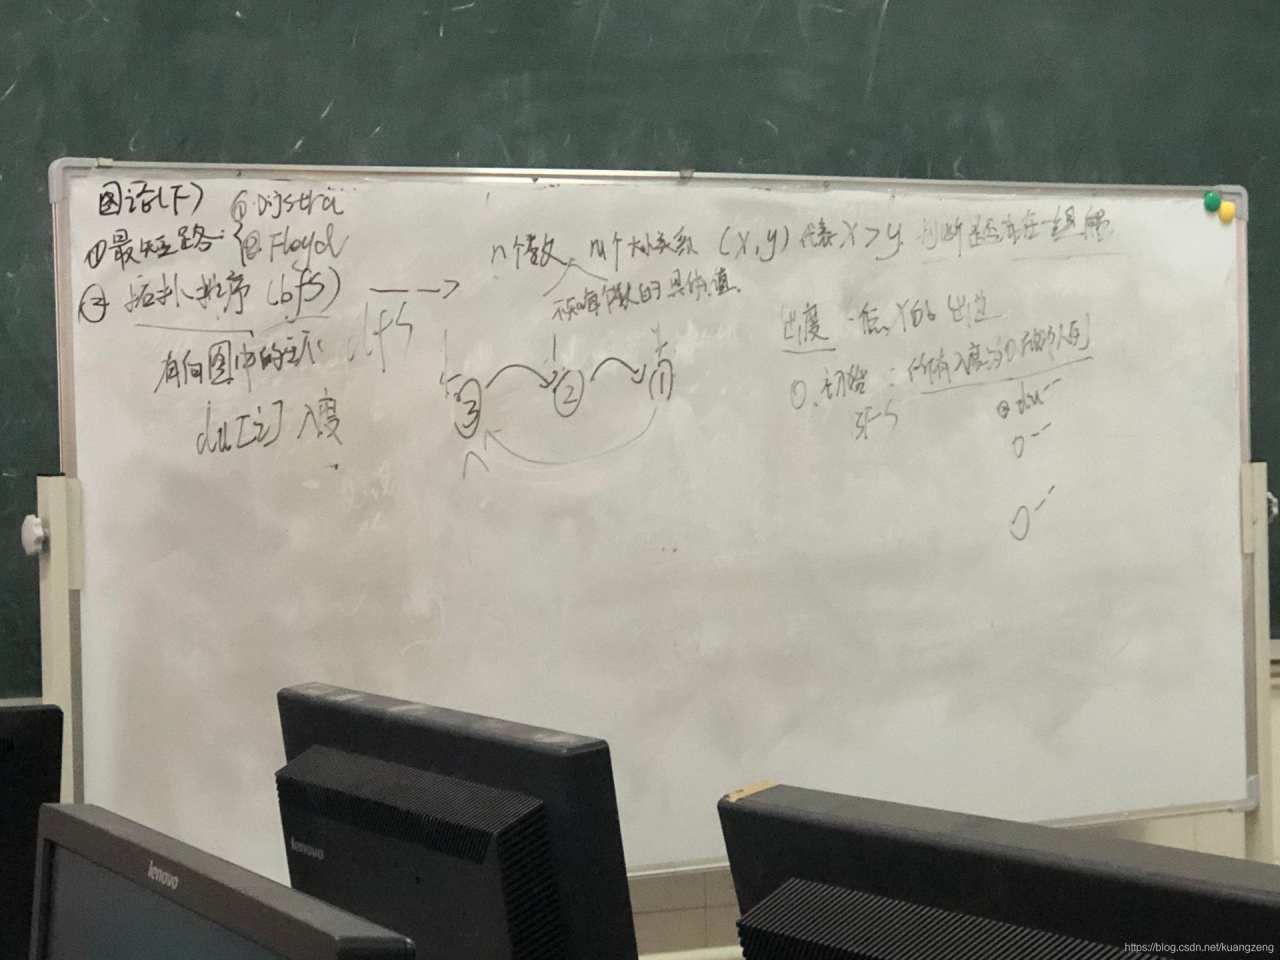 图论(下)
① Dijstra
①最短路:
② Floyd
② 拓扑排序 (bfs)
dfs
有向图中的
du[i] 入度
n个数 m个大小关系 (x,y) 代表 x>y. 判断是否存在一组解
不知每个数的具体值.
3
2
1
出度 一点 的出边
初始: 所有入度为0
du
lenovo
lenovo
https://blog.csdn.net/kuangzeng